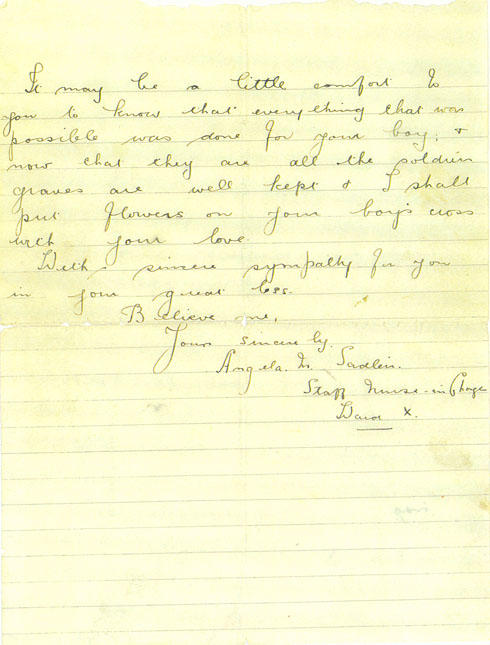 It may be a little comfort to
you to know that everything that was
possible was done for your boy, &
now that they are all the soldiers
graves are well kept & I shall
put flowers on your boy's cross
with your love.
With sincere sympathy for you
in your great loss.
Believe me,
Yours sincerely,
Angela. M.
Staff Nurse-in-Charge
Ward X.